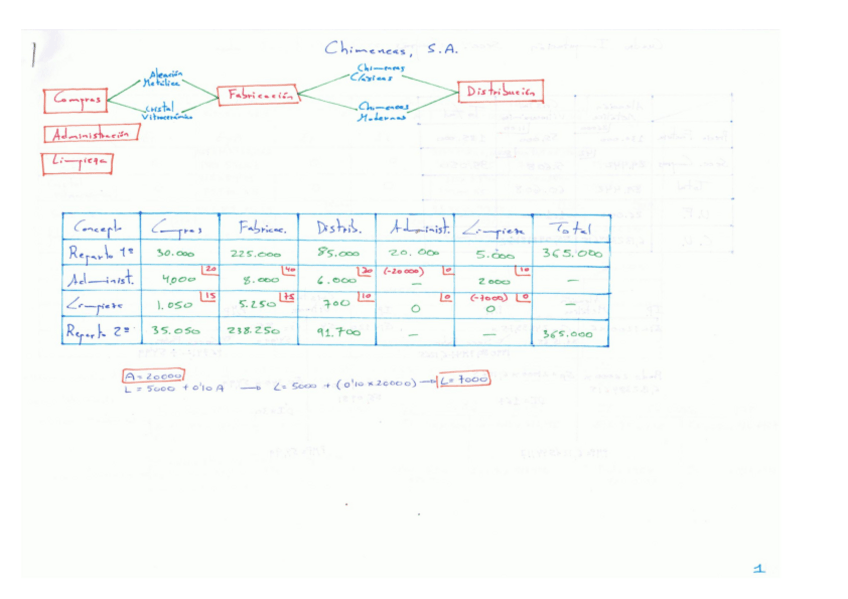 1
Chimeneas, S.A.
Aleación Metálica
Chimeneas Clásicas
Compras
Fabricación
Distribución
Cristal Vitrocerámico
Chimeneas Modernas
Administración
Limpieza
Concepto Compras Fabricac. Distrib. Administ. Limpieza Total
Reparto 1º 30.000 225.000 85.000 20.000 5.000 365.000
Administ. 4000 20 8.000 40 6.000 30 (-20000) 0 — 2000 10 —
Limpieza 1.050 15 5.250 75 700 10 0 0 (-7000) 0 0 —
Reparto 2º 35.050 238.250 91.700 — — 365.000
A = 20000
L = 5000 + 0'10 A → L = 5000 + (0'10 x 20000) → L = 7000
1